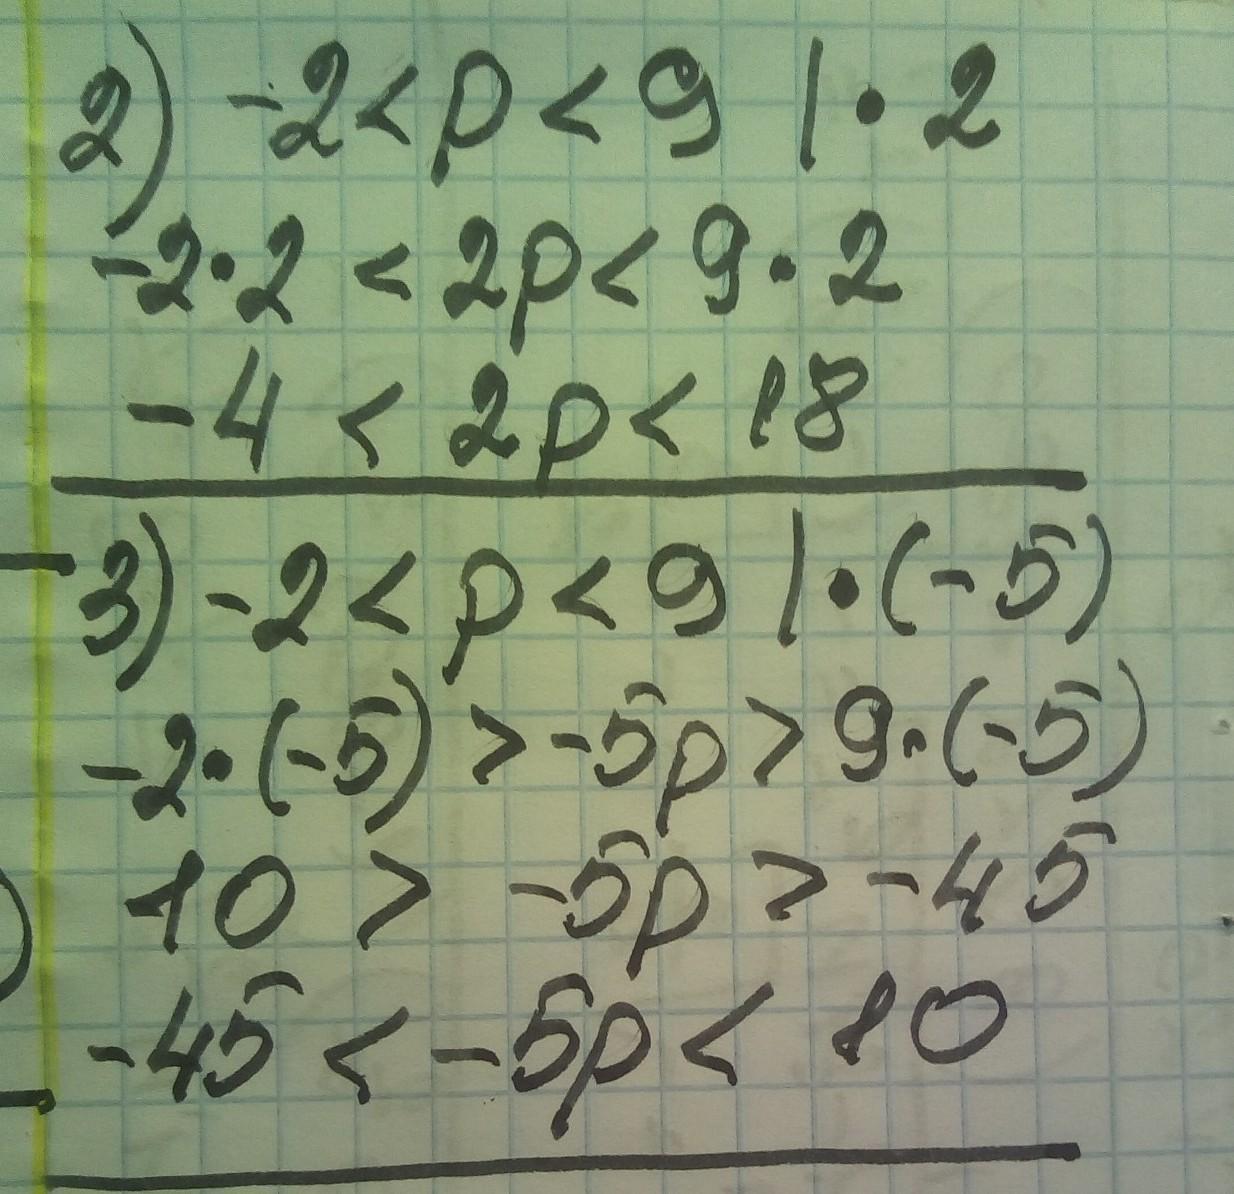 2) -2 < p < 9 | • 2
-2 • 2 < 2p < 9 • 2
-4 < 2p < 18
3) -2 < p < 9 | • (-5)
-2 • (-5) > -5p > 9 • (-5)
10 > -5p > -45
-45 < -5p < 10